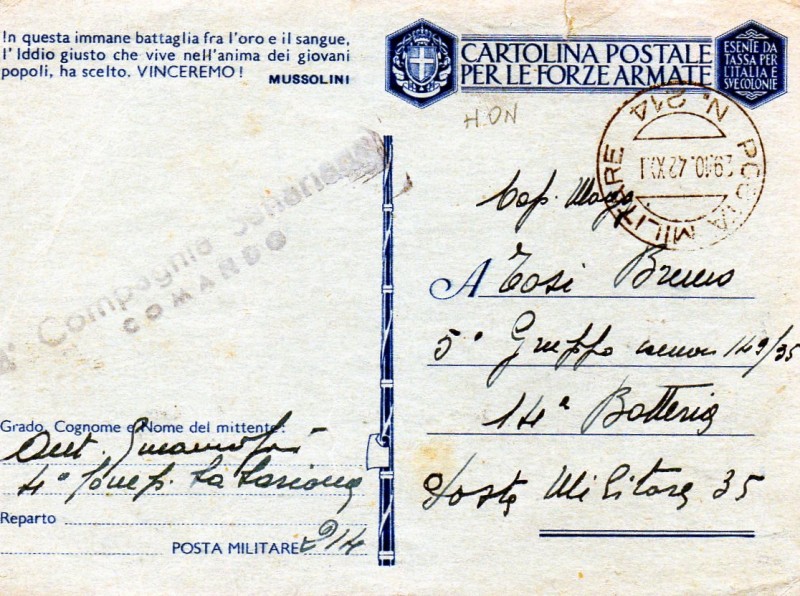 In questa immane battaglia fra l'oro e il sangue,
l'Iddio giusto che vive nell'anima dei giovani
popoli, ha scelto. VINCEREMO!
MUSSOLINI
CARTOLINA POSTALE
PER LE FORZE ARMATE
ESENTE DA
TASSA PER
L'ITALIA E
SVE COLONIE
H.ON
POSTA MILITARE
N. 214
29.10.42.XXI
Compagnia
COMANDO
Cap. Magg.
A Tosi Bruno
5° Gruppo cannoni 149/35
14ª Batteria
Posta Militare 35
Grado, Cognome e Nome del mittente:
4ª
Reparto
POSTA MILITARE 214